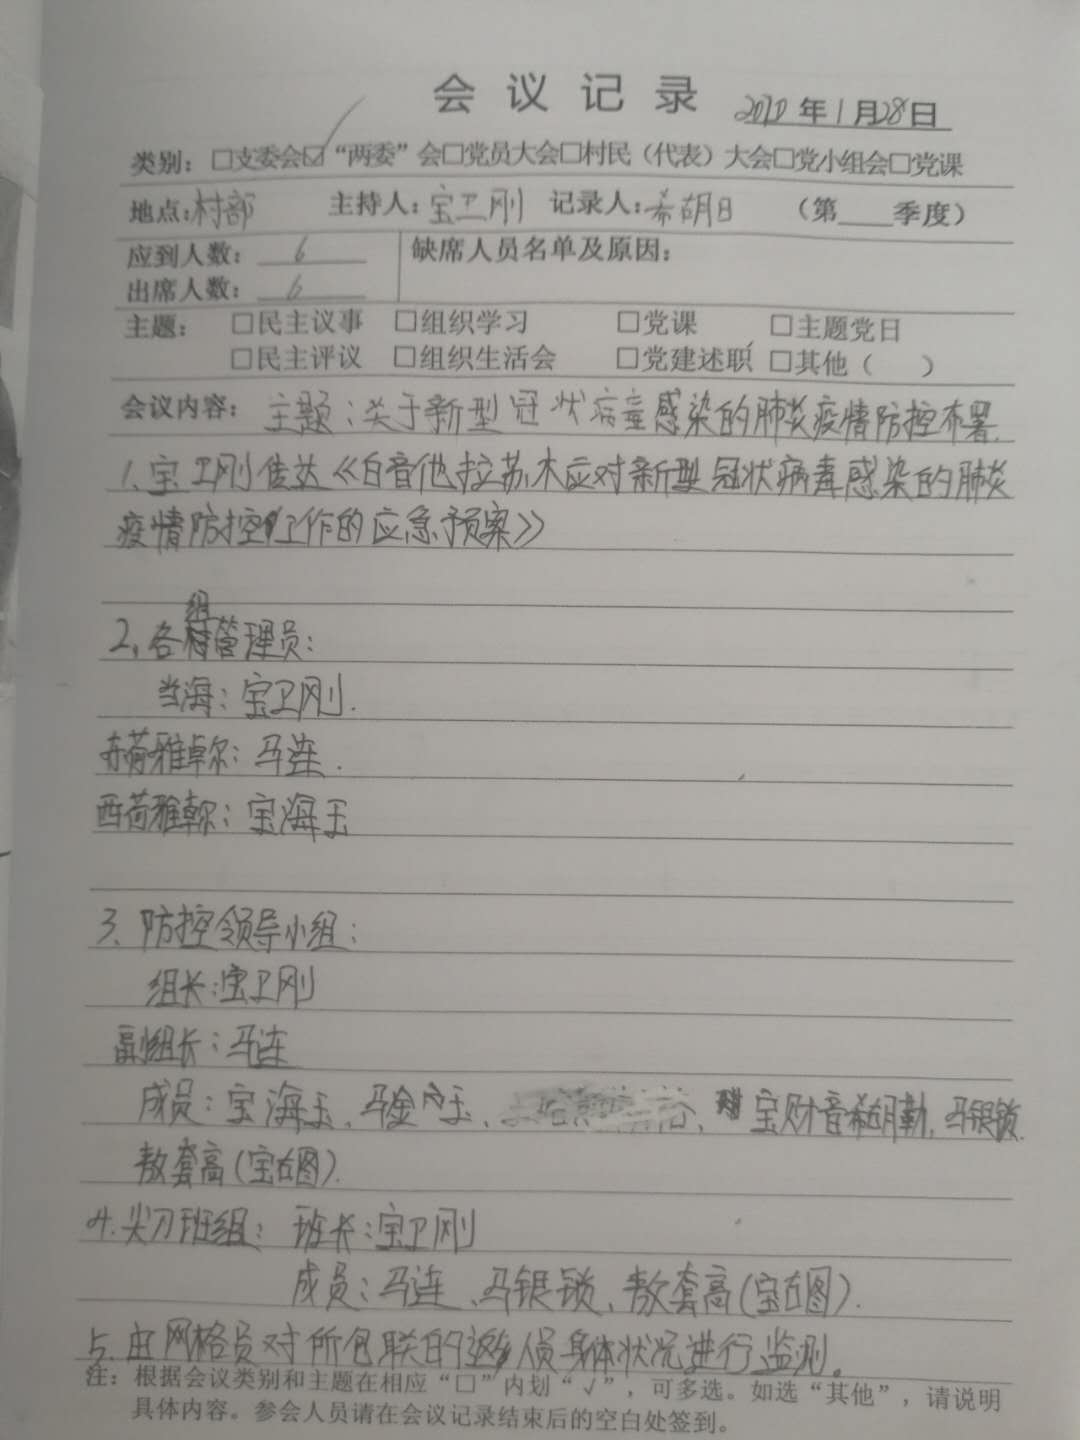 会议记录
2020年1月28日
类别：□支委会☑“两委”会□党员大会□村民（代表）大会□党小组会□党课
地点：村部 主持人：宝卫刚 记录人：希胡日 （第___季度）
应到人数：6 缺席人员名单及原因：
出席人数：6
主题： □民主议事 □组织学习 □党课 □主题党日
□民主评议 □组织生活会 □党建述职 □其他（ ）
会议内容：主题：关于新型冠状病毒感染的肺炎疫情防控布署.
1.宝卫刚传达《白音他拉苏木应对新型冠状病毒感染的肺炎
疫情防控工作的应急预案》
2.各组管理员：
当海：宝卫刚.
东荷雅卓尔：马连.
西荷雅卓尔：宝海玉
3.防控领导小组：
组长：宝卫刚
副组长：马连
成员：宝海玉、马金玉、宝财音希胡勒、马银锁
敖套高(宝古图).
4.尖刀班组：班长：宝卫刚
成员：马连、马银锁、敖套高(宝古图).
5.由网格员对所包联的返乡人员身体状况进行监测。
注：根据会议类别和主题在相应“□”内划“√”，可多选。如选“其他”，请说明
具体内容。参会人员请在会议记录结束后的空白处签到。